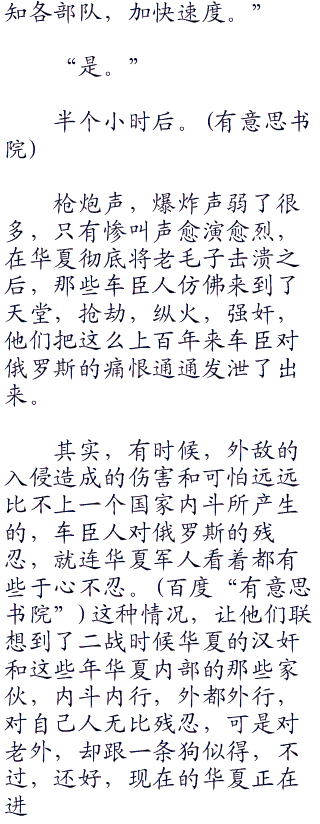 知各部队，加快速度。”
“是。”
半个小时后。(有意思书
院)
枪炮声，爆炸声弱了很
多，只有惨叫声愈演愈烈，
在华夏彻底将老毛子击溃之
后，那些车臣人仿佛来到了
天堂，抢劫，纵火，强奸，
他们把这么上百年来车臣对
俄罗斯的痛恨通通发泄了出
来。
其实，有时候，外敌的
入侵造成的伤害和可怕远远
比不上一个国家内斗所产生
的，车臣人对俄罗斯的残
忍，就连华夏军人看着都有
些于心不忍。(百度“有意思
书院”)这种情况，让他们联
想到了二战时候华夏的汉奸
和这些年华夏内部的那些家
伙，内斗内行，外都外行，
对自己人无比残忍，可是对
老外，却跟一条狗似得，不
过，还好，现在的华夏正在
进